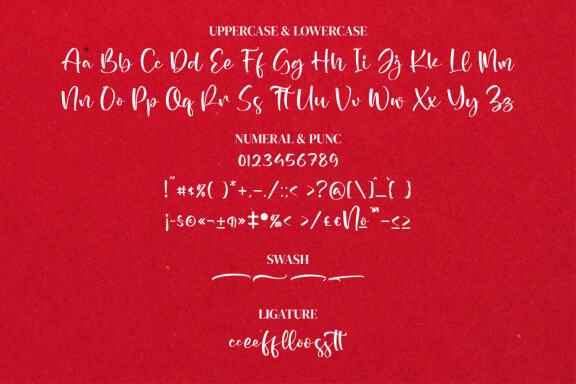 UPPERCASE & LOWERCASE
Aa Bb Cc Dd Ee Ff Gg Hh Ii Jj Kk Ll Mm
Nn Oo Pp Qq Rr Ss Tt Uu Vv Ww Xx Yy Zz
NUMERAL & PUNC
0123456789
!"#$%( )*+,-./:;< >?@[\]^_`{ }
¡~§©«¬±¶»‡•‰< >/££№™−≤≥
SWASH
LIGATURE
cceefflloosstt